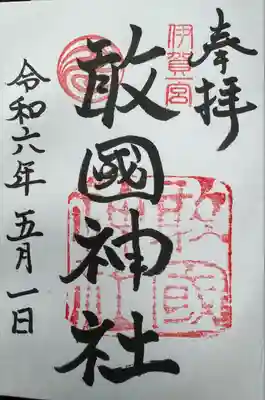 奉拝
伊賀一宮
敢國神社
令和六年五月一日